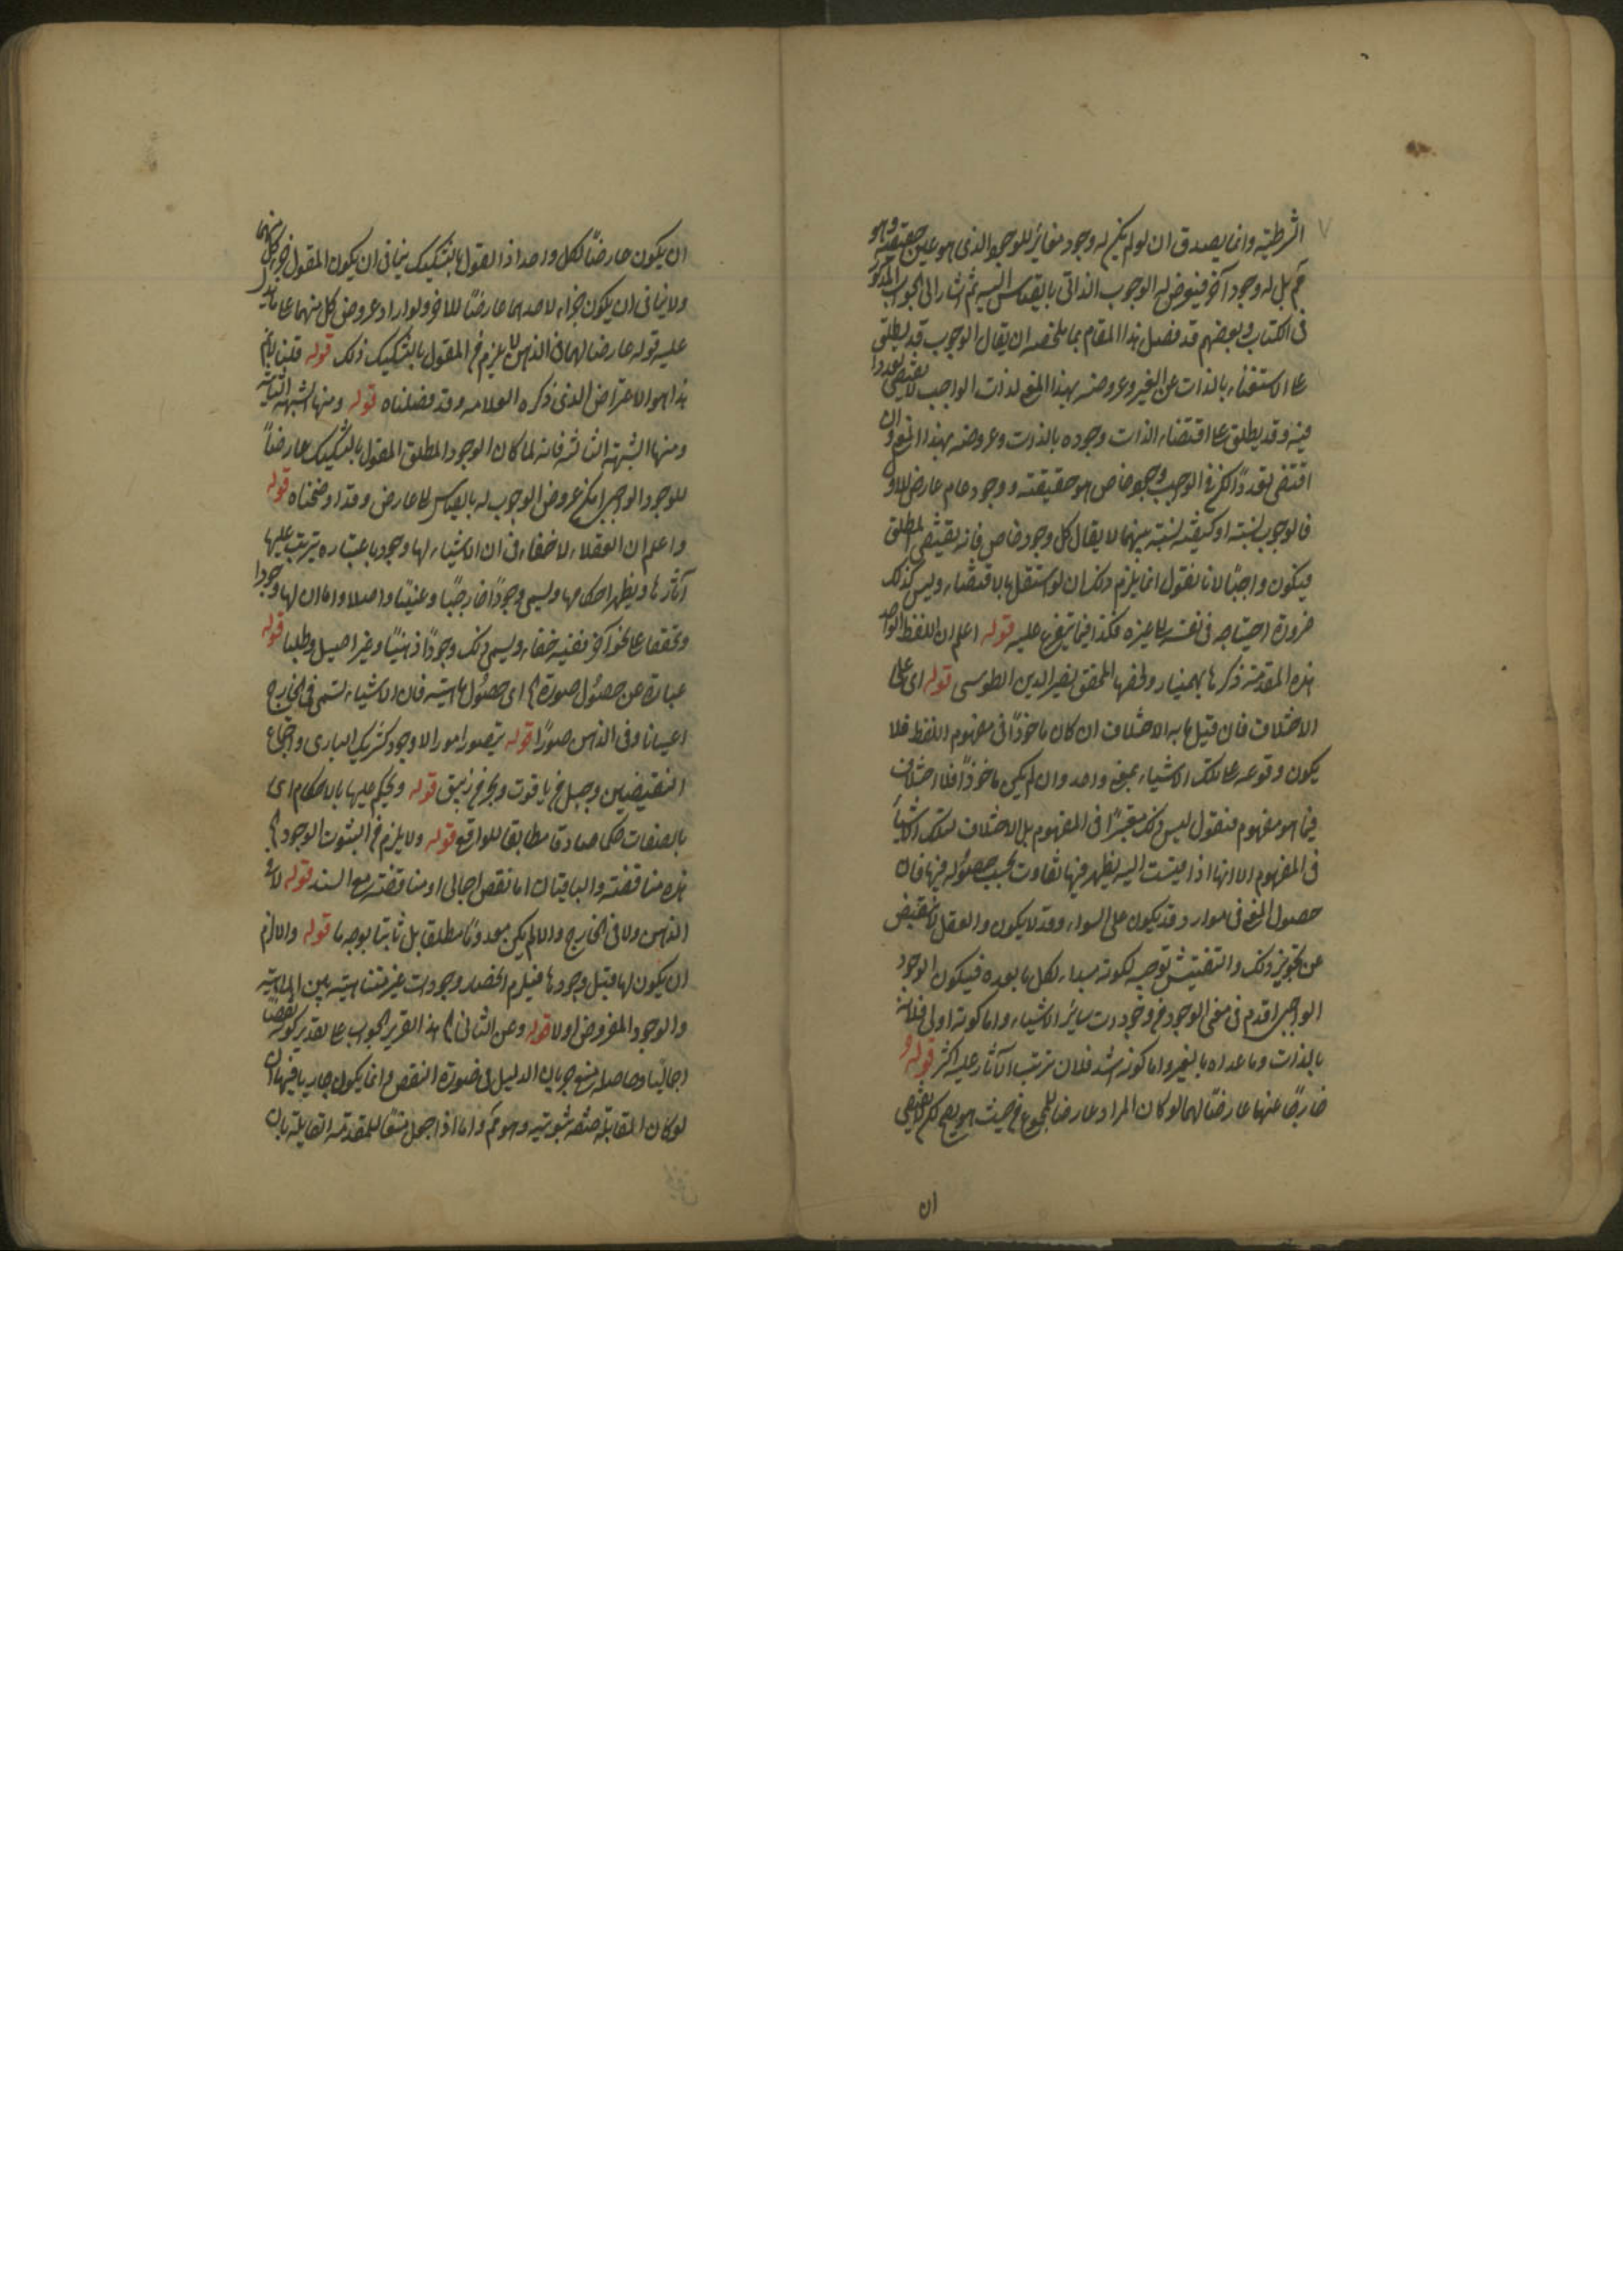 الشرطية وانما يصدق ان لو لم يكن له وجود مغاير للوجود الذى هو عين حقيقته وهو
مم بل له وجود آخر فيعرض له الوجوب الذاتى بالقياس اليه ثم اشار الى الجواب المذكور
فى الكتاب وبعضهم قد فصل هذا المقام بما ملخصه ان يقال الوجوب قد يطلق
على الاستغناء بالذات عن الغير وعروضه بهذا المعنى لذات الواجب لا يقتضى تعددا
فيه وقد يطلق على اقتضاء الذات وجوده بالذات وعروضه بهذا المعنى وان
اقتضى تعددًا لكن فى الواجب وجود خاص هو حقيقته ووجود عام عارض للاول
فالوجوب نسبة او كيفية نسبة بينهما لا يقال كل وجود خاص فانه يقتضى المطلق
فيكون واجبًا لانا نقول انما يلزم ذلك ان لو استقل بالاقتضاء وليس كذلك
ضرورة احتياجه فى نفسه الى غيره فكذا فيما يتفرع عليه قوله اعلم ان اللفظ الواحد
هذه المقدمة ذكرها بهمنيار ولخصها المحقق نصير الدين الطوسى قوله اى على
الاختلاف فان قيل ما به الاختلاف ان كان ماخوذًا فى مفهوم اللفظ فلا
يكون وقوعه على تلك الاشياء بمعنى واحد وان لم يكن ماخوذًا فلا اختلاف
فيما هو مفهوم فنقول ليس ذلك معتبرًا فى المفهوم بل الاختلاف لتلك الاشياء
فى المفهوم الا انها اذا قيست اليه يظهر فيها تفاوت بحسب حصوله فيها فان
حصول المعنى فى موارد قد يكون على السواء وقد لا يكون والعقل لا ينقبض
عن تجويز ذلك والتفتيش توجبه لكونه مبدأ لكل ما بعده فيكون الوجود
الواجبى اقدم فى معنى الوجود من وجودات سائر الاشياء واما كونه اولى فلانه
بالذات وما عداه بالغير واما كونه اشد فلان ترتب الآثار عليه اكثر قوله و
خارجًا عنها عارضًا لهما لو كان المراد عارضا للمجموع من حيث هو يصح لكن لا يقتضى
ان
ان يكون عارضًا لكل واحد اذ المقول بالتشكيك ينافى ان يكون المقول جزء كل منهما
ولا ينافى ان يكون جزاء لاحدهما عارضًا للاخر ولو اراد عروض كل منهما على ما يدل
عليه قوله عارضا لهما فى الذهن لا يلزم من المقول بالتشكيك ذلك قوله قلنا لانم
هذا هو الاعتراض الذى ذكره العلامه وقد فصلناه قوله ومنها الشبهة الثانية
ومنها الشبهة الثالثة فانه لما كان الوجود المطلق المقول بالتشكيك عارضًا
للوجود الواجبى امكن عروض الوجوب له بالقياس الى عارض وقد اوضحناه قوله
واعلم ان العقلاء لا خفاء فى ان الاشياء لها وجود باعتباره يترتب عليها
آثارها ويظهر احكامها ويسمى وجودًا خارجيًا وعينيًا واصلا واما ان لها وجودا
وتحققا على نحو آخر ففيه خفاء ويسمى ذلك وجودًا ذهنيًا وغير اصيل وظليا قوله
عبارة عن حصول صورة ؟ اى حصول ماهيته فان الاشياء تسمى فى الخارج
اعيانا وفى الذهن صورًا قوله يتصور امورا لا وجود كشريك البارى واجتماع
النقيضين وجبل من ياقوت وبحر من زيبق قوله ويحكم عليها بالاحكام اى
بالصفات حكما صادقا مطابقا للواقع قوله ولا يلزم من الثبوت الوجود ؟
هذه مناقضة والباقيتان اما نقض اجمالى او مناقضة مع السند قوله لا فى
الذهن ولا فى الخارج والا لم يكن معدومًا مطلقا بل ثابتا بوجه ما قوله والا لزم
ان يكون لها قبل وجودها فيلزم انحصار وجودات غير متناهية بين الماهية
والوجود المفروض اولا قوله وعن الثانى ؟ هذا تقرير الجواب على تقدير كونه نقضًا
اجماليًا وحاصله منع جريان الدليل فى صورة النقض وانما يكون جاريا فيها ان
لو كان المقابلة صفة ثبوتية وهو مم واما اذا جعل منعًا للمقدمة القايلة بان